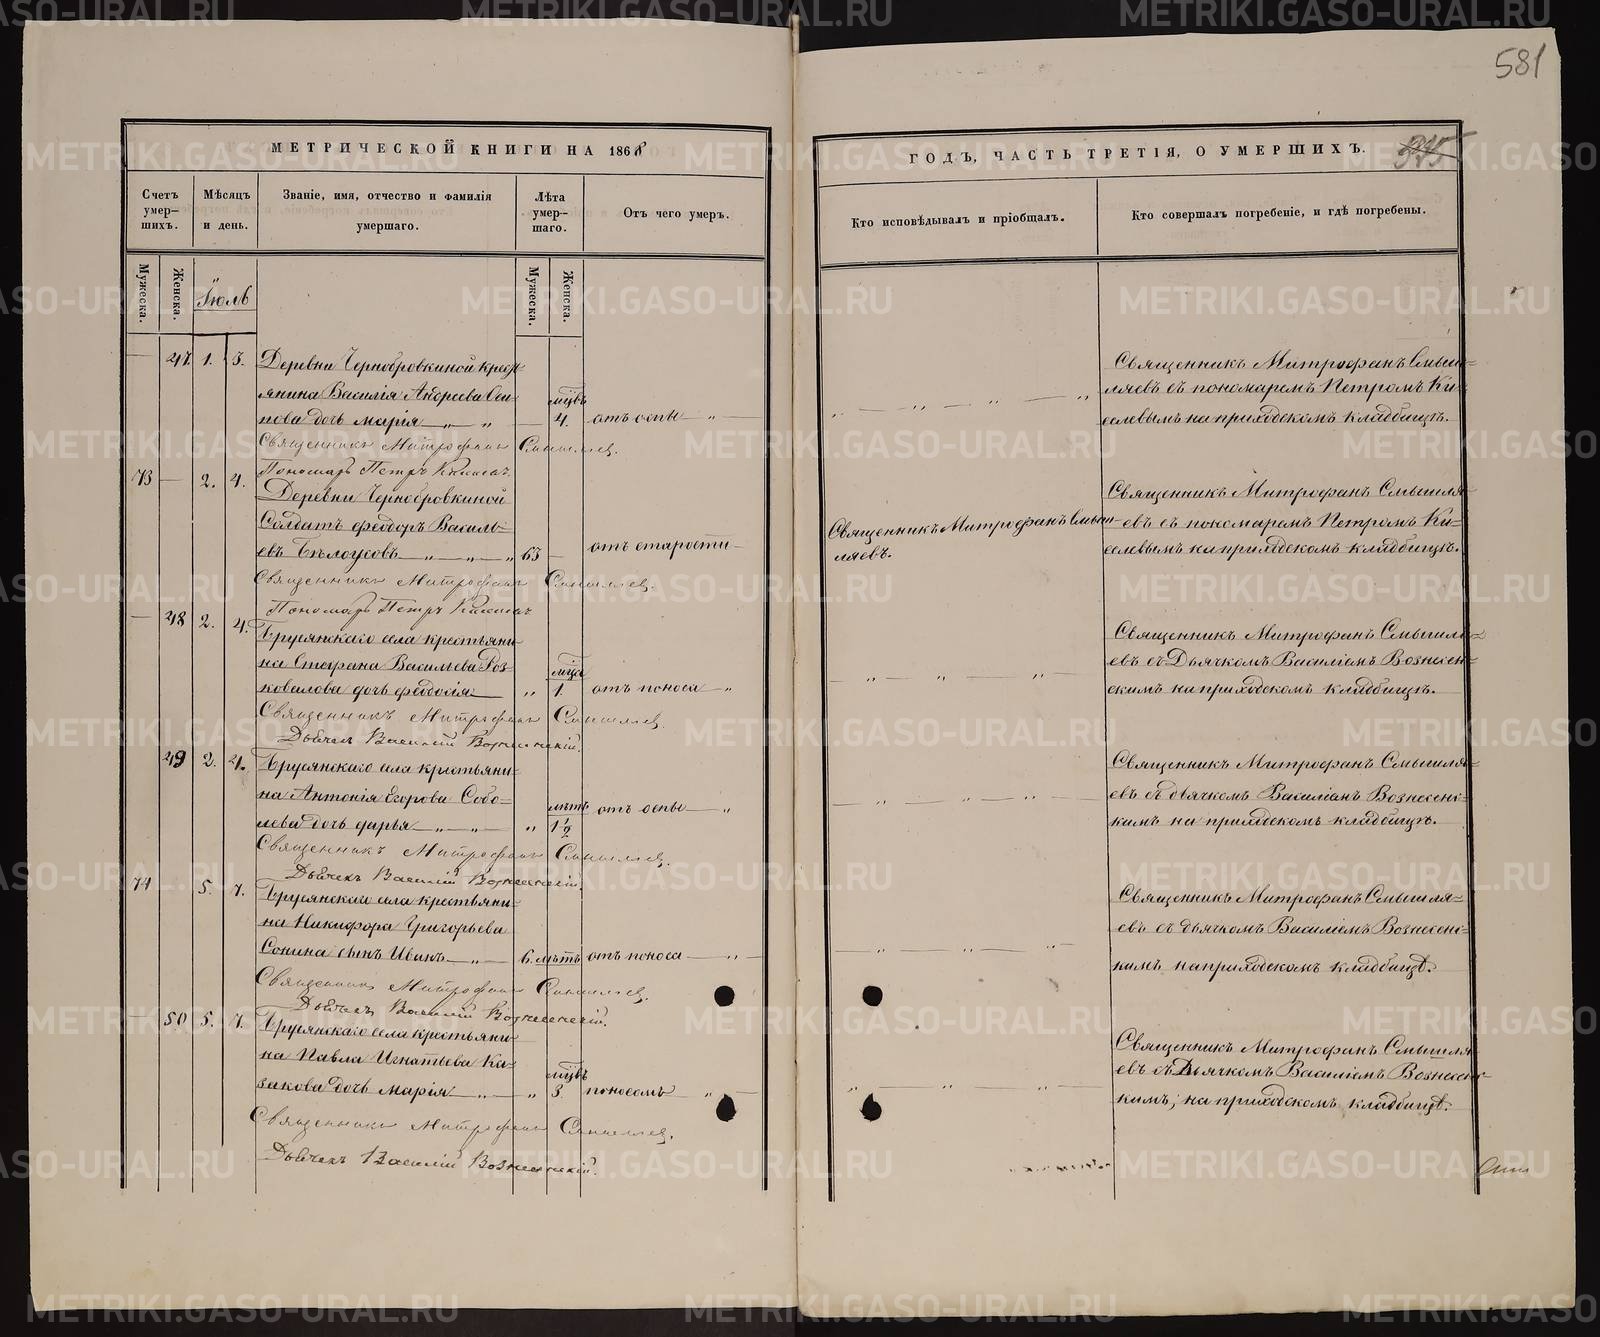 581
МЕТРИЧЕСКОЙ КНИГИ НА 1868
ГОДЪ, ЧАСТЬ ТРЕТІЯ, О УМЕРШИХЪ.
375
Счетъ умер-шихъ.
Мѣсяцъ и день.
Званіе, имя, отчество и фамилія умершаго.
Лѣта умер-шаго.
Отъ чего умеръ.
Кто исповѣдывалъ и пріобщалъ.
Кто совершалъ погребеніе, и гдѣ погребены.
Мужеска.
Женска.
Іюль
Мужеска.
Женска.
47. 1. 3. Деревни Чернобровкиной крест-
янина Василія Андреева Оси-
пова дочь марія мцвъ 4. отъ оспы
Священникъ Митрофанъ Смышляевъ
Пономарь Петръ Киселевъ
Священникъ Митрофанъ Смыш-
ляевъ съ пономаремъ Петромъ Ки-
селевымъ на приходскомъ кладбищѣ.
73 2. 4. Деревни Чернобровкиной
Солдатъ феодоръ Василь-
евъ Бѣлоусовъ 63 отъ старости
Священникъ Митрофанъ Смышляевъ
Пономарь Петръ Киселевъ
Священникъ Митрофанъ Смыш-
ляевъ.
Священникъ Митрофанъ Смышля-
евъ съ пономаремъ Петромъ Ки-
селевымъ на приходскомъ кладбищѣ.
48 2. 4. Брусянскаго села крестьяни-
на Стефана Васильева Роз-
ковалова дочь феодосія мца 1. отъ поноса
Священникъ Митрофанъ Смышляевъ
Дьячекъ Василій Вознесенскій.
Священникъ Митрофанъ Смышля-
евъ съ Дьячкомъ Василіемъ Вознесен-
скимъ на приходскомъ кладбищѣ.
49 2. 4. Брусянскаго села крестьяни-
на Антонія Егорова Собо-
лева дочь дарья лѣтъ 1 1/2 отъ оспы
Священникъ Митрофанъ Смышляевъ
Дьячекъ Василій Вознесенскій.
Священникъ Митрофанъ Смышля-
евъ съ дьячкомъ Василіемъ Вознесенс-
кимъ на приходскомъ кладбищѣ.
74 5. 7. Брусянскаго села крестьяни-
на Никифора Григорьева
Сонина сынъ Иванъ 6. лѣтъ отъ поноса
Священникъ Митрофанъ Смышляевъ
Дьячекъ Василій Вознесенскій.
Священникъ Митрофанъ Смышля-
евъ съ дьячкомъ Василіемъ Вознесенс-
кимъ на приходскомъ кладбищѣ.
50 5. 7. Брусянскаго села крестьяни-
на Павла Игнатьева Ка-
закова дочь марія мцвъ 3. поносомъ
Священникъ Митрофанъ Смышляевъ
Дьячекъ Василій Вознесенскій.
Священникъ Митрофанъ Смышля-
евъ съ Дьячкомъ Василіемъ Вознесенс-
кимъ, на приходскомъ кладбищѣ.
METRIKI.GASO-URAL.RU